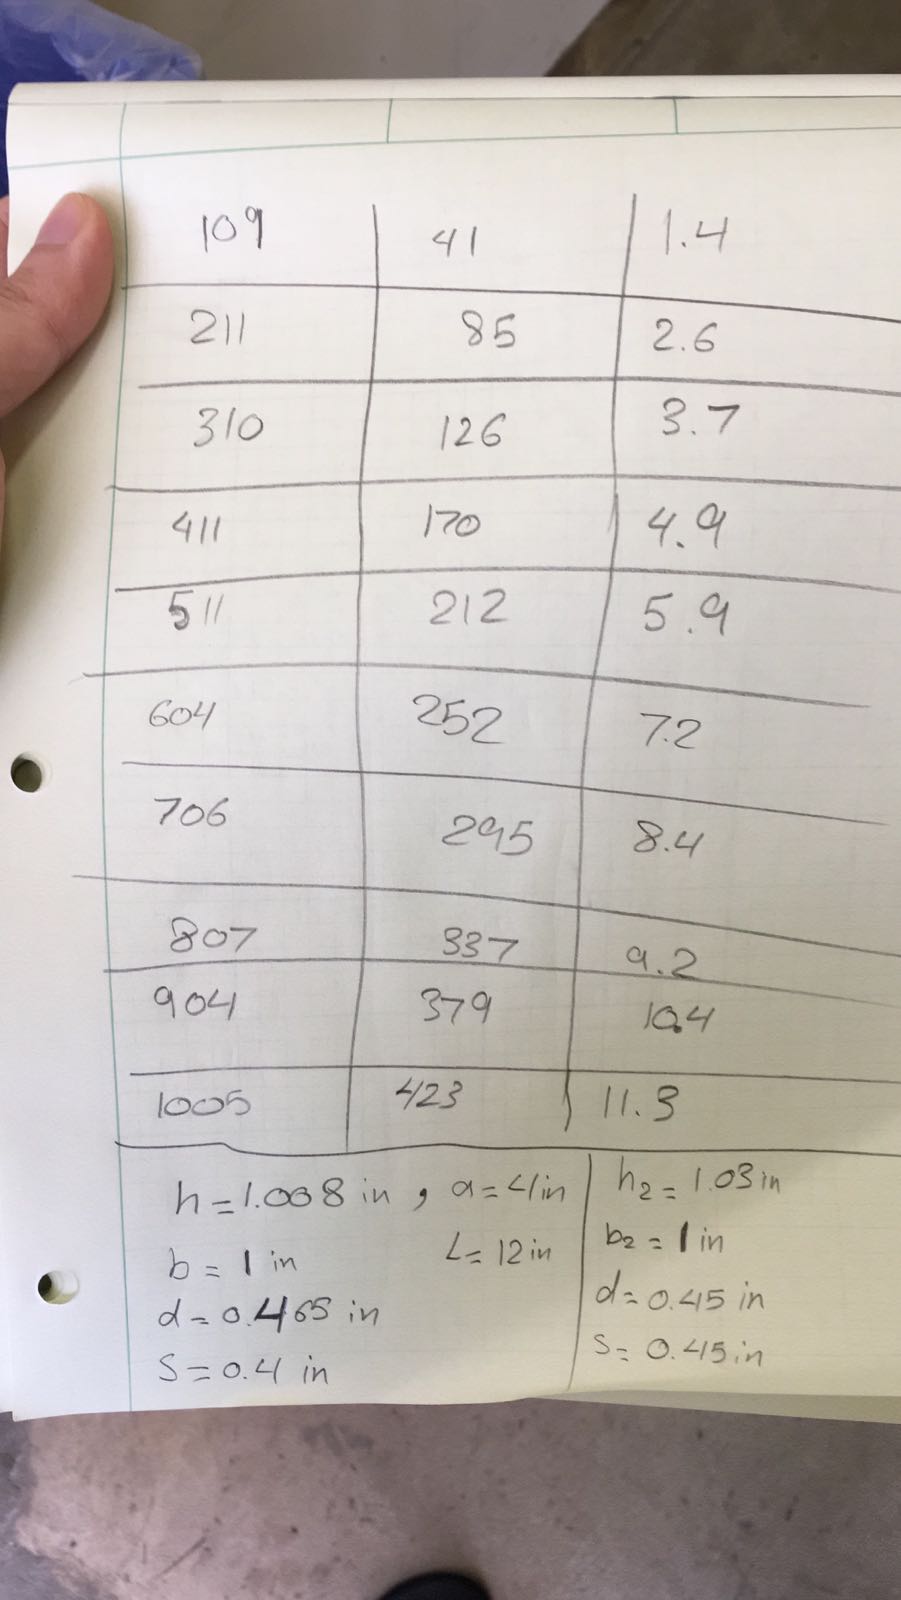 109 41 1.4
211 85 2.6
310 126 3.7
411 170 4.9
511 212 5.9
604 252 7.2
706 295 8.4
807 337 9.2
904 379 10.4
1005 423 11.3
h = 1.008 in , a = 4in
b = 1 in L = 12 in
d = 0.465 in
S = 0.4 in
h2 = 1.03 in
b2 = 1 in
d = 0.45 in
S = 0.45 in